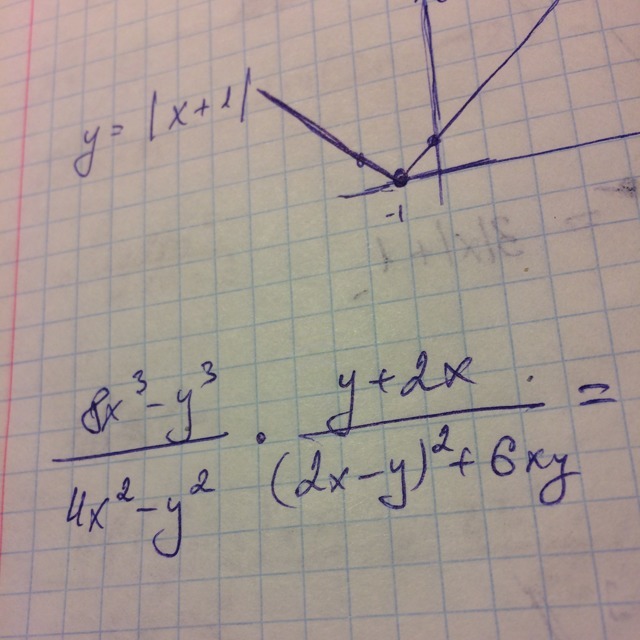 y = |x+1|
-1
8x³-y³ / 4x²-y² · y+2x / (2x-y)²+6xy =